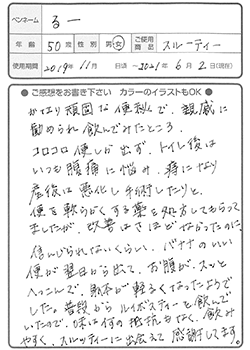 ペンネーム るー
年齢 50歳 性別 男・女 ご使用商品 スルーティー
使用期間 2019年11月 日頃 ~2021年6月2日(現在)
● ご感想をお書き下さい カラーのイラストもOK ●
かなり頑固な便秘で、親戚に
勧められ飲んでみたところ。
コロコロ便しか出ず、トイレ後は
いつも腹痛に悩み、痔になり
産後は悪化し手術したりと、
便を軟らかくする薬を処方してもらって
ましたが、改善はさほどなかったのに、
信じられないくらい、バナナのいい
便が翌日から出て、お腹が、スッと
へっこんで、財布が軽くなったようで
した。普段からルイボスティーと飲んで
いたので、味は何の抵抗もなく、飲み
やすく、スルッティーに出会えて感謝してます。